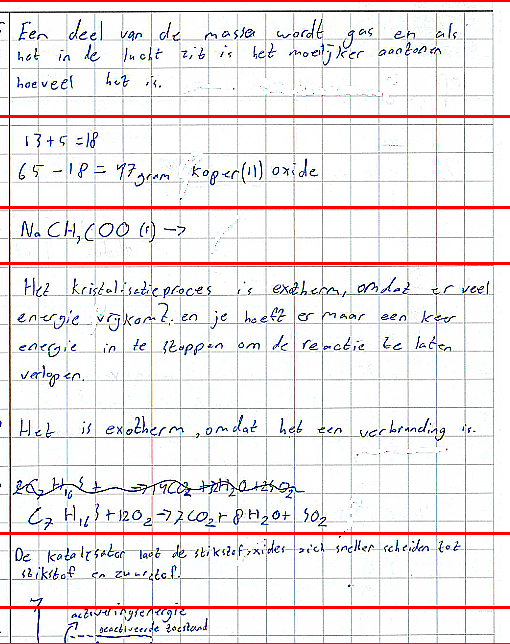 Een deel van de massa wordt gas en als
het in de lucht zit is het moeilijker aantonen
hoeveel het is.
13 + 5 = 18
65 - 18 = 47 gram koper(II) oxide
NaCH3COO (s) →
Het kristalisatieproces is exotherm, omdat er veel
energie vrijkomt. en je hoeft er maar een keer
energie in te stoppen om de reactie te laten
verlopen.
Het is exotherm, omdat het een verbranding is.
C7 H16 S + 12O2 → 7CO2 + 8H2O + SO2
De katalysator laat de stikstofoxides zich sneller scheiden tot
stikstof en zuurstof.
activeringsenergie
geactiveerde toestand